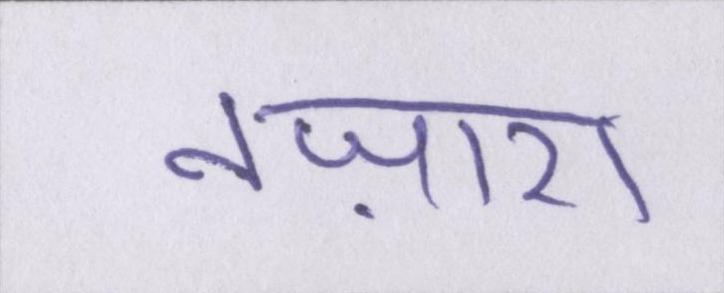 नज़ारा